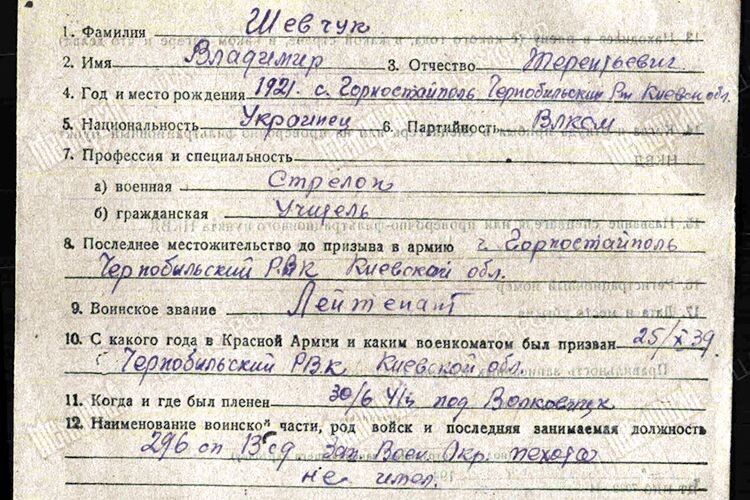 1. Фамилия Шевчук
2. Имя Владимир 3. Отчество Терентьевич
4. Год и место рождения 1921. с. Горностайполь Чернобыльский Рн Киевск обл.
5. Национальность Украинец 6. Партийность Влксм
7. Профессия и специальность
а) военная Стрелок
б) гражданская Учитель
8. Последнее местожительство до призыва в армию Горностайполь
Чернобыльский Р.В.К Киевской обл.
9. Воинское звание Лейтенант
10. С какого года в Красной Армии и каким военкоматом был призван 25/X 39.
Чернобыльский РВК Киевской обл.
11. Когда и где был пленен 30/6 41г под Волковыск
12. Наименование воинской части, род войск и последняя занимаемая должность
296 сп 13 сд Зап Воен Окр. пехота
не